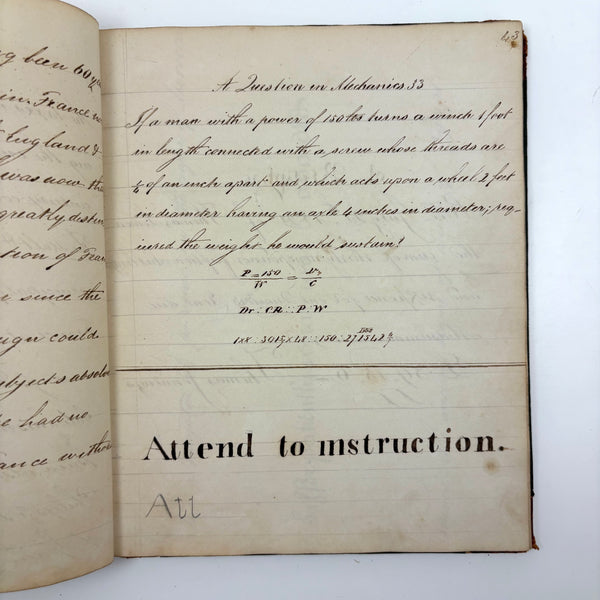 43
g been 60 y
in France
England &
was now the
greatly disten
tion of Fran
n since the
ugn could
ubjects absolu
he had no
ance withou
A Question in Mechanics 33
If a man with a power of 150 lbs turns a winch 1 foot
in length connected with a screw whose threads are
of an inch apart and which acts upon a wheel 2 feet
in diameter having an axle 4 inches in diameter; req-
uired the weight he would sustain?
P=150
W = C
Dr : CR :: P : W
:: 150 :
Attend to instruction.
Att